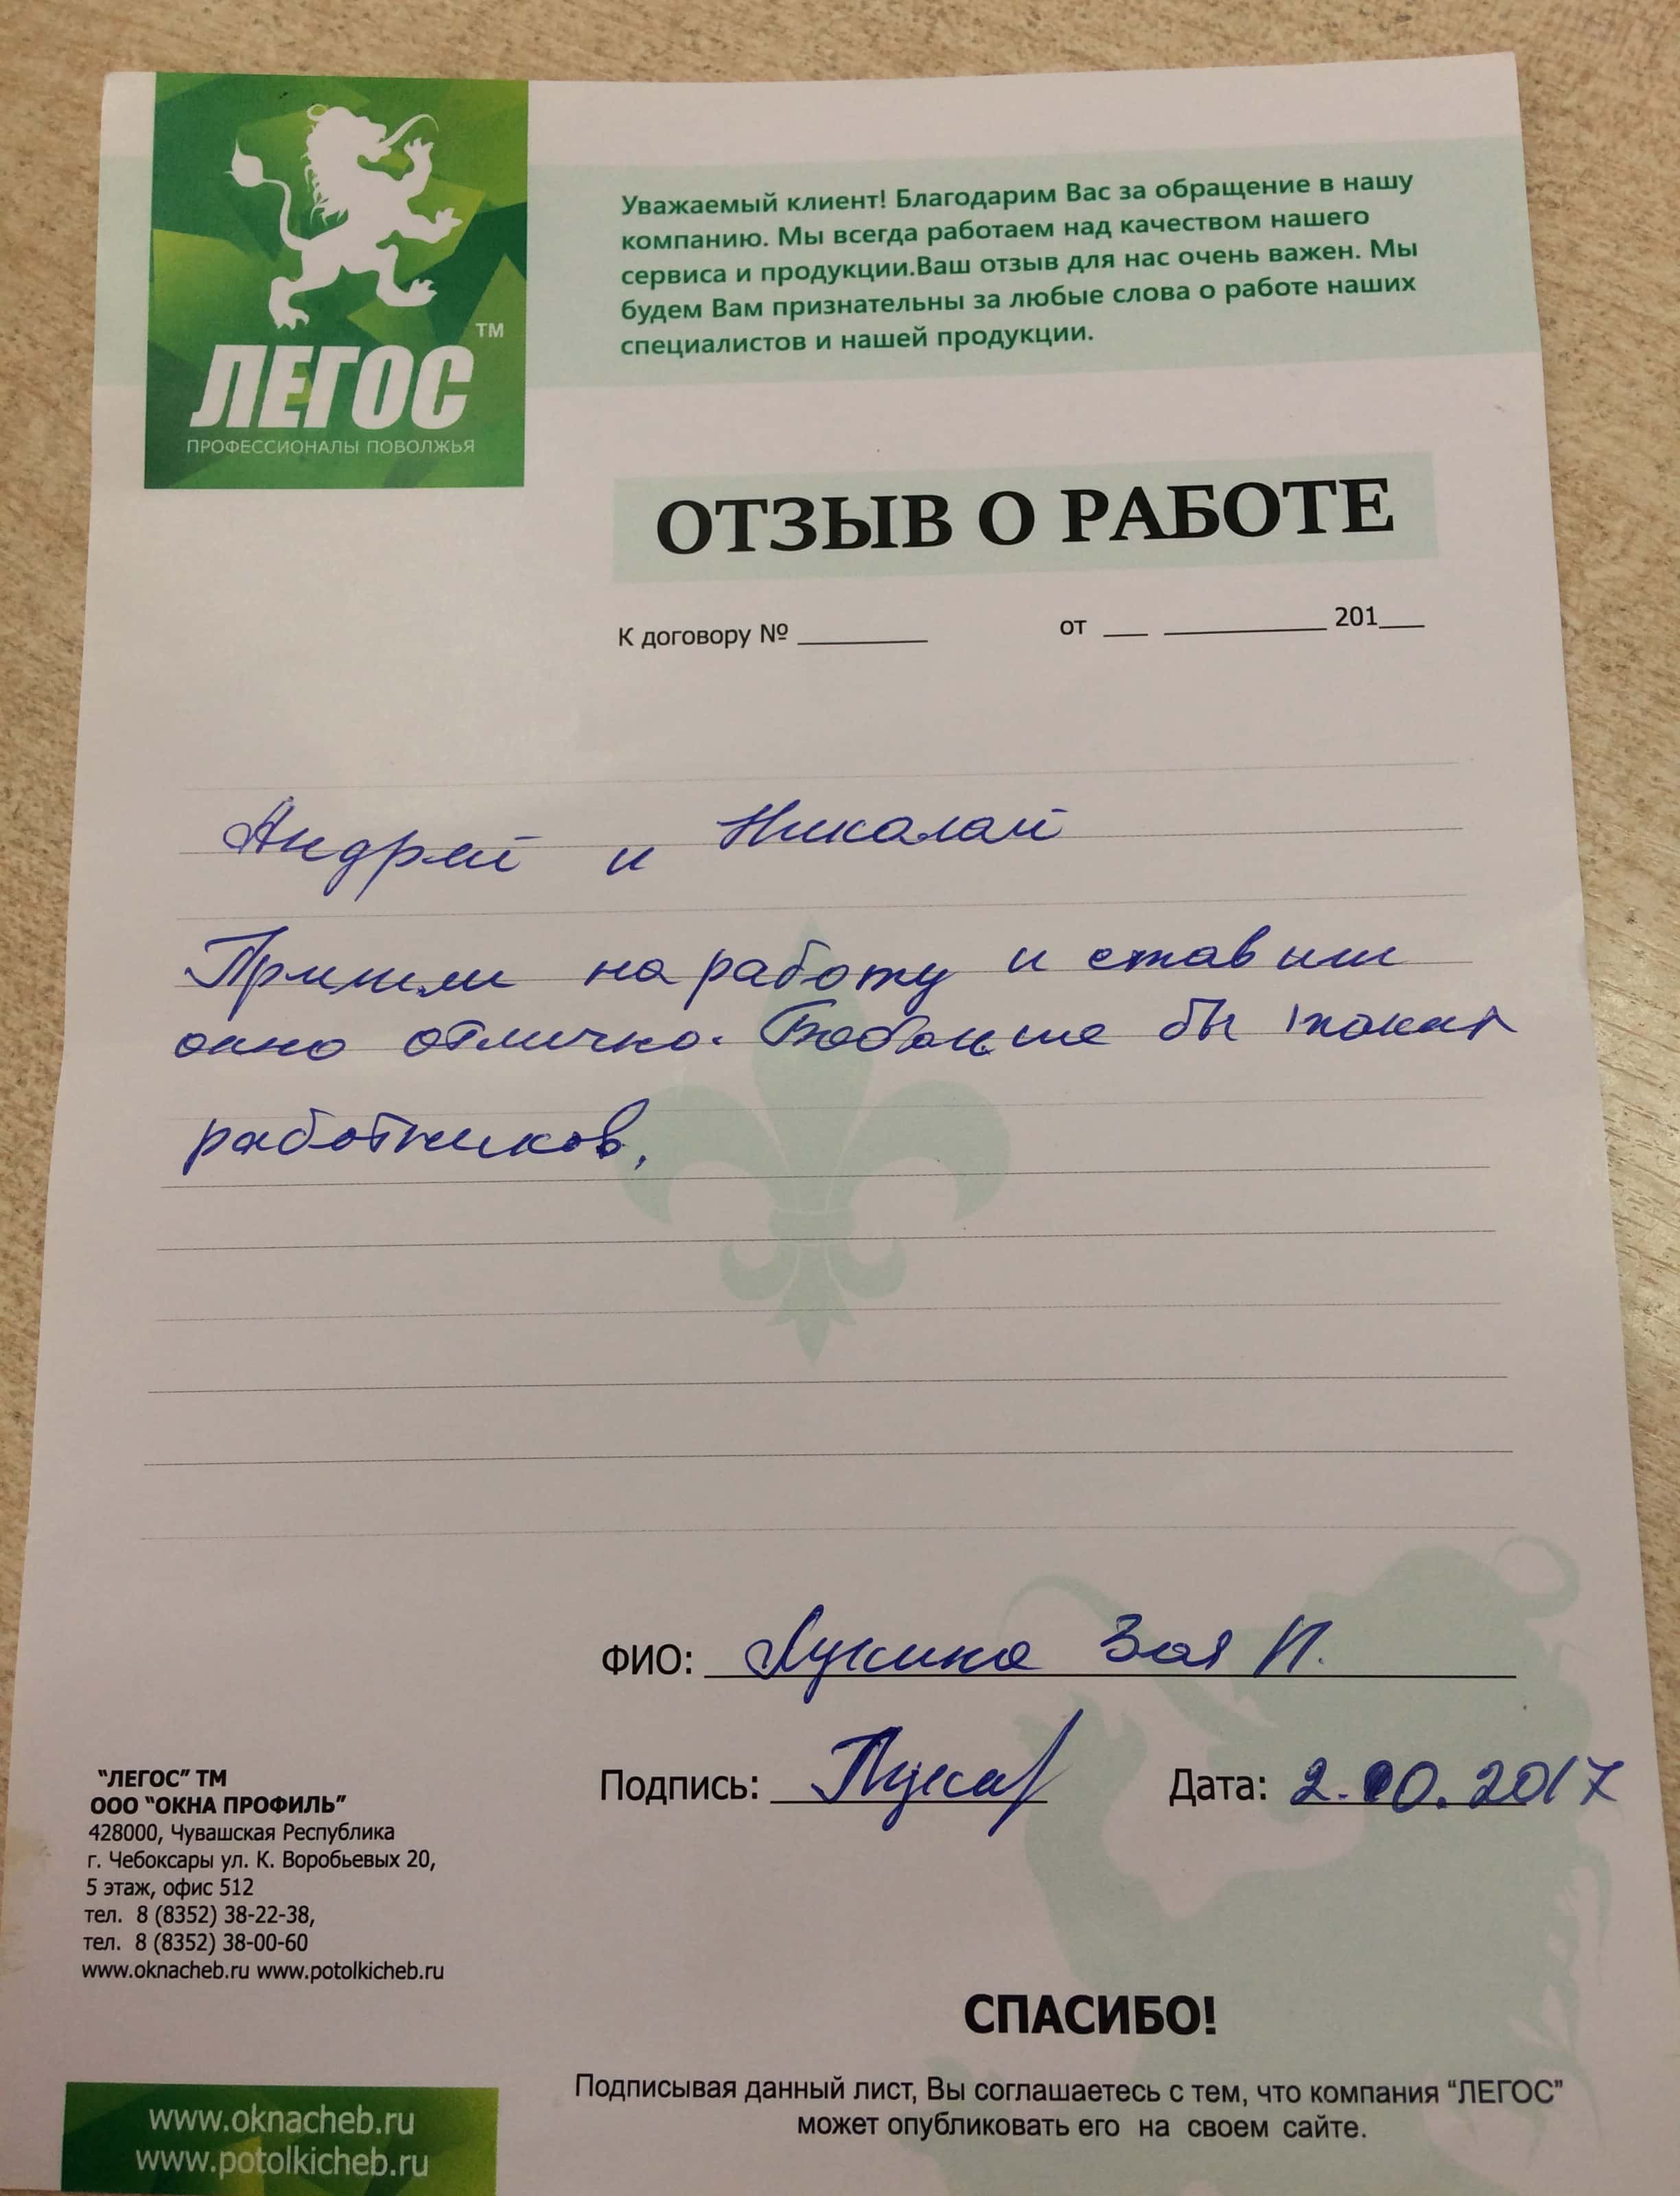 ЛЕГОС™
ПРОФЕССИОНАЛЫ ПОВОЛЖЬЯ
Уважаемый клиент! Благодарим Вас за обращение в нашу
компанию. Мы всегда работаем над качеством нашего
сервиса и продукции.Ваш отзыв для нас очень важен. Мы
будем Вам признательны за любые слова о работе наших
специалистов и нашей продукции.
ОТЗЫВ О РАБОТЕ
К договору № ______ от __ ________ 201__
Андрей и Николай
Пришли на работу и ставили
окно отлично. бы таких
работников.
ФИО: Лукина Зоя И.
Подпись: Дата: 2.10.2017
"ЛЕГОС" ТМ
ООО "ОКНА ПРОФИЛЬ"
428000, Чувашская Республика
г. Чебоксары ул. К. Воробьевых 20,
5 этаж, офис 512
тел. 8 (8352) 38-22-38,
тел. 8 (8352) 38-00-60
www.oknacheb.ru www.potolkicheb.ru
СПАСИБО!
Подписывая данный лист, Вы соглашаетесь с тем, что компания "ЛЕГОС"
может опубликовать его на своем сайте.
www.oknacheb.ru
www.potolkicheb.ru